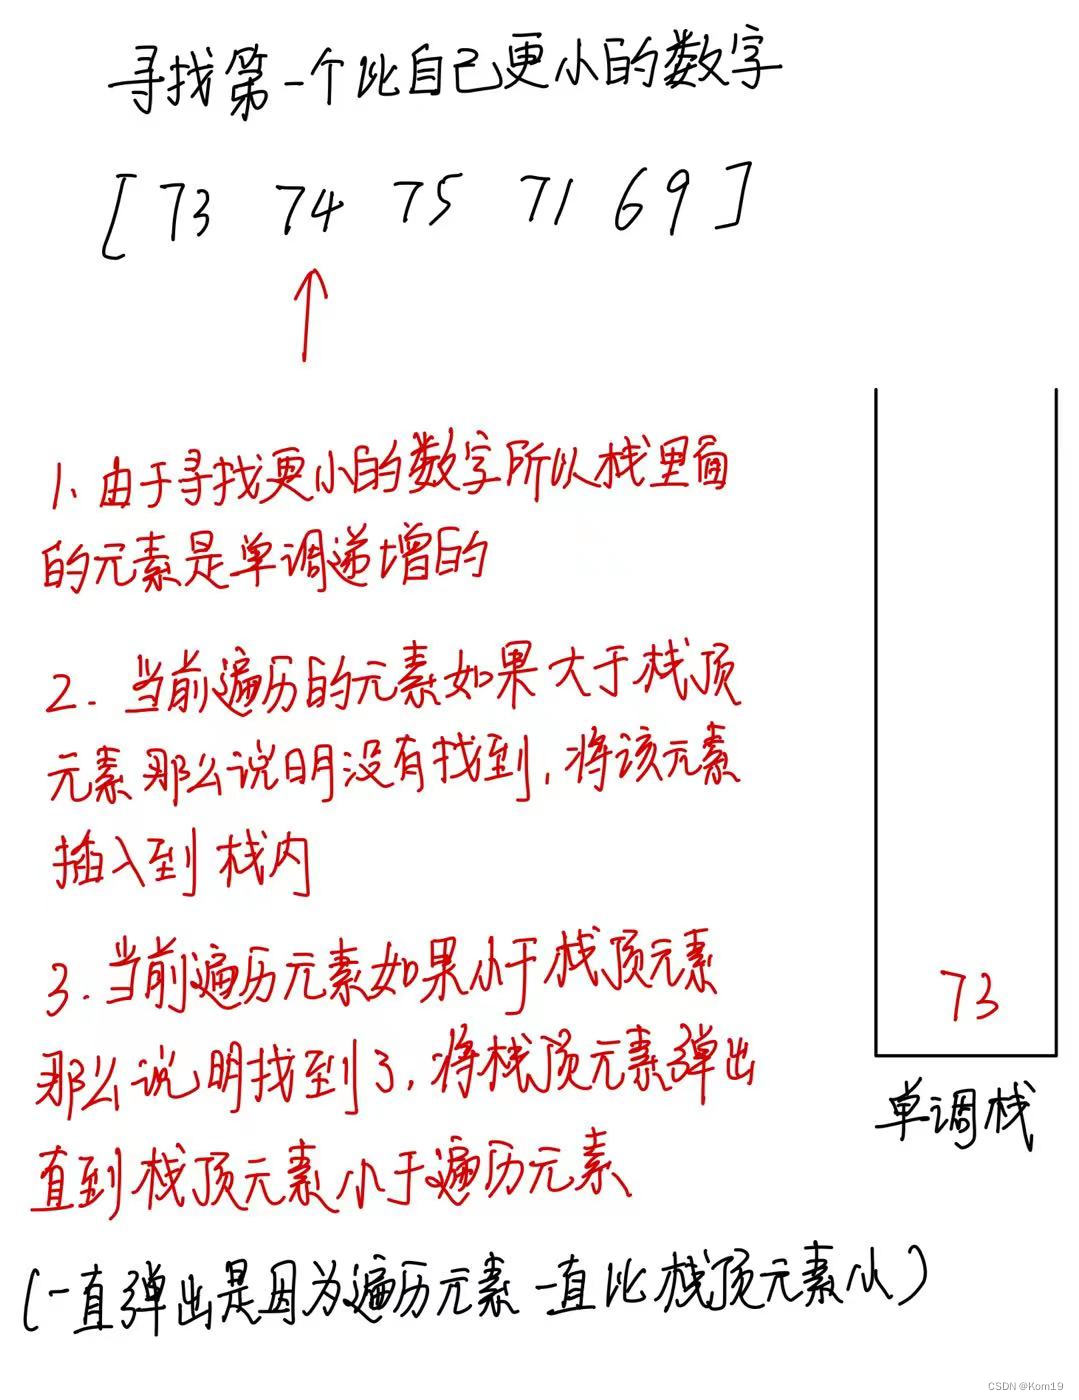 寻找第一个比自己更小的数字
[ 73 74 75 71 69 ]
1、由于寻找更小的数字所以栈里面
的元素是单调递增的
2. 当前遍历的元素如果大于栈顶
元素那么说明没有找到,将该元素
插入到栈内
3. 当前遍历元素如果小于栈顶元素
那么说明找到了,将栈顶元素弹出
直到栈顶元素小于遍历元素
(一直弹出是因为遍历元素一直比栈顶元素小)
73
单调栈
CSDN @Kom19